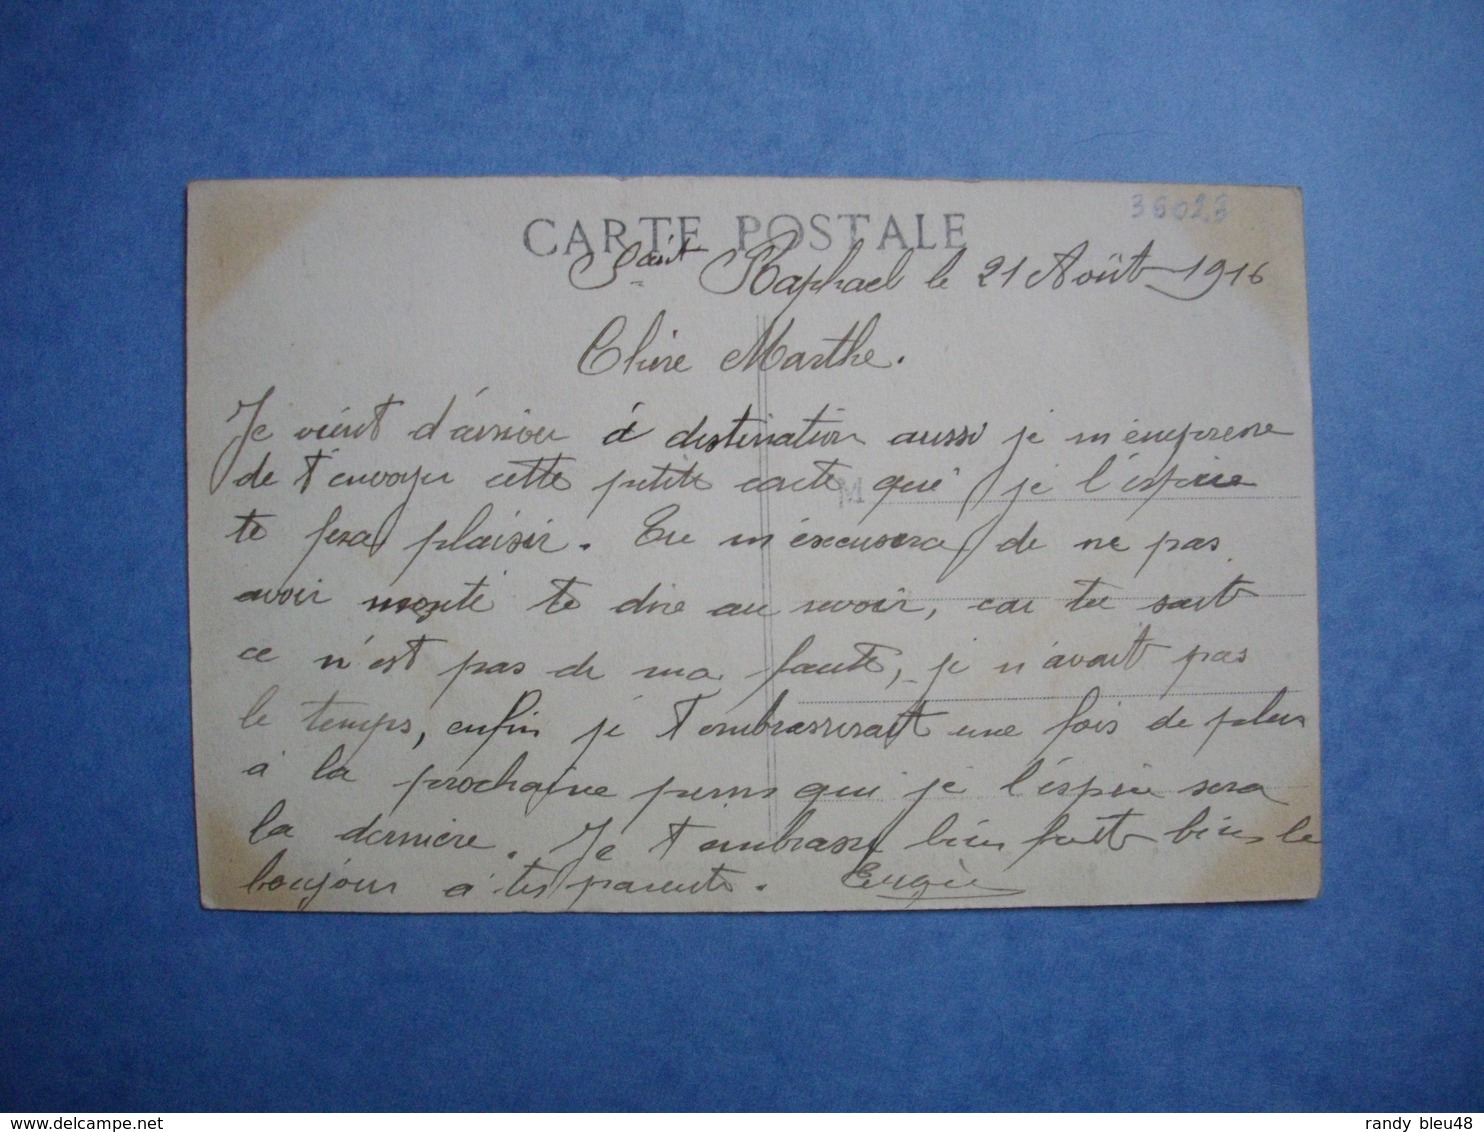 35023
CARTE POSTALE
Saint Raphael le 21 Août 1916
Chère Marthe.
Je vient d'arriver à destination aussi je m'empresse
de t'envoyer cette petite carte qui je l'espère
M
te fera plaisir. Tu m'excusera de ne pas
avoir monté te dire au revoir, car tu sait
ce n'est pas de ma faute, je n'avait pas
le temps, enfin je t'embrasserait une fois de plus
à la prochaine perm qui je l'espère sera
la dernière. Je t'embrasse bien fort bien le
boujour à tes parents. Eugène
randy bleu48